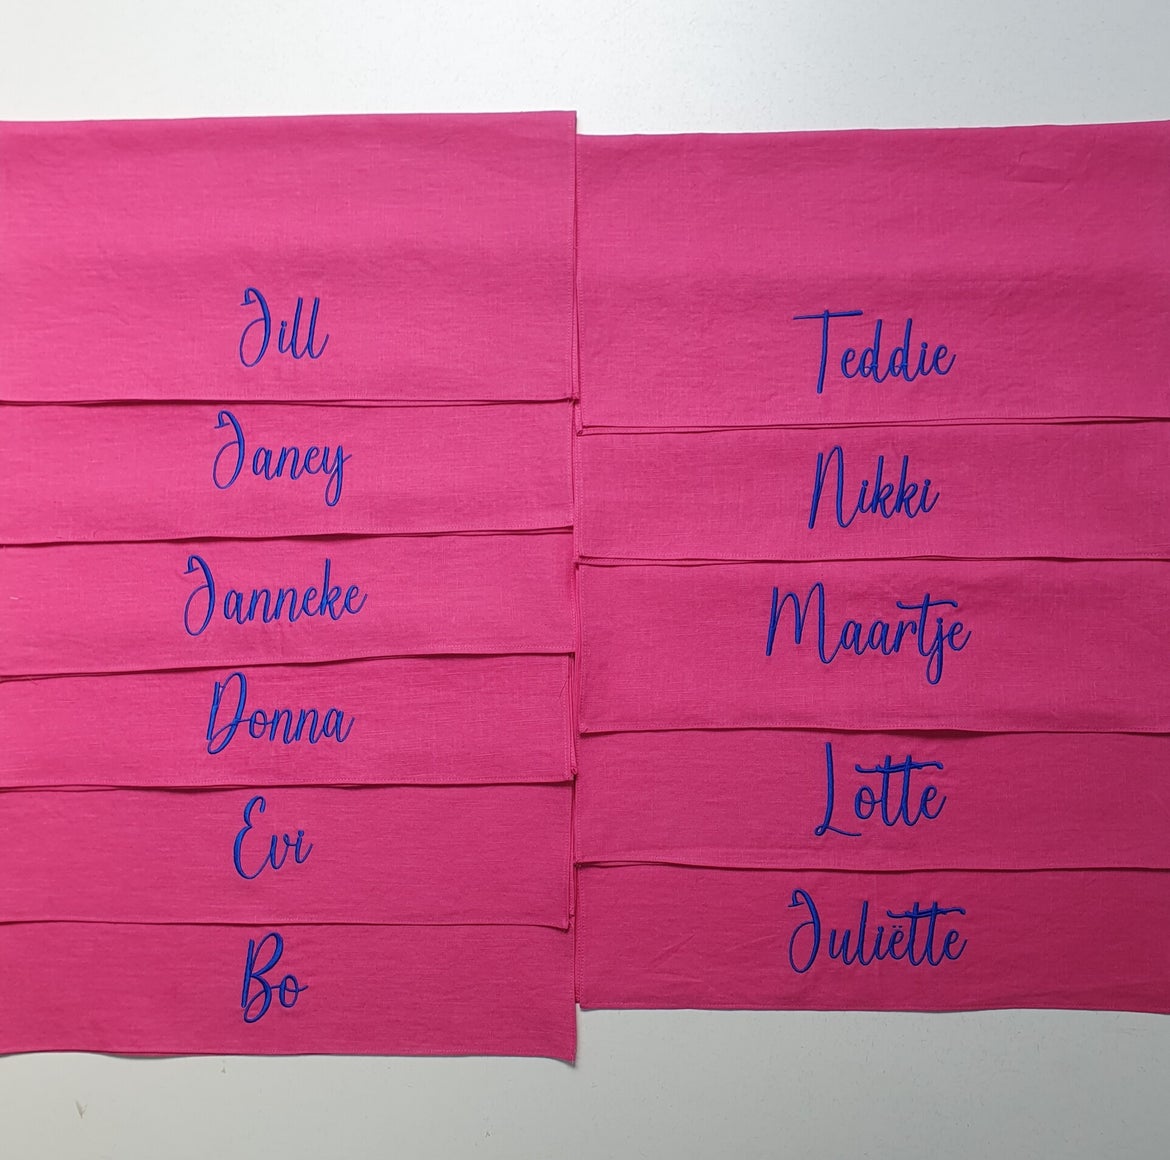 Jill
Janey
Janneke
Donna
Evi
Bo
Teddie
Nikki
Maartje
Lotte
Juliëtte